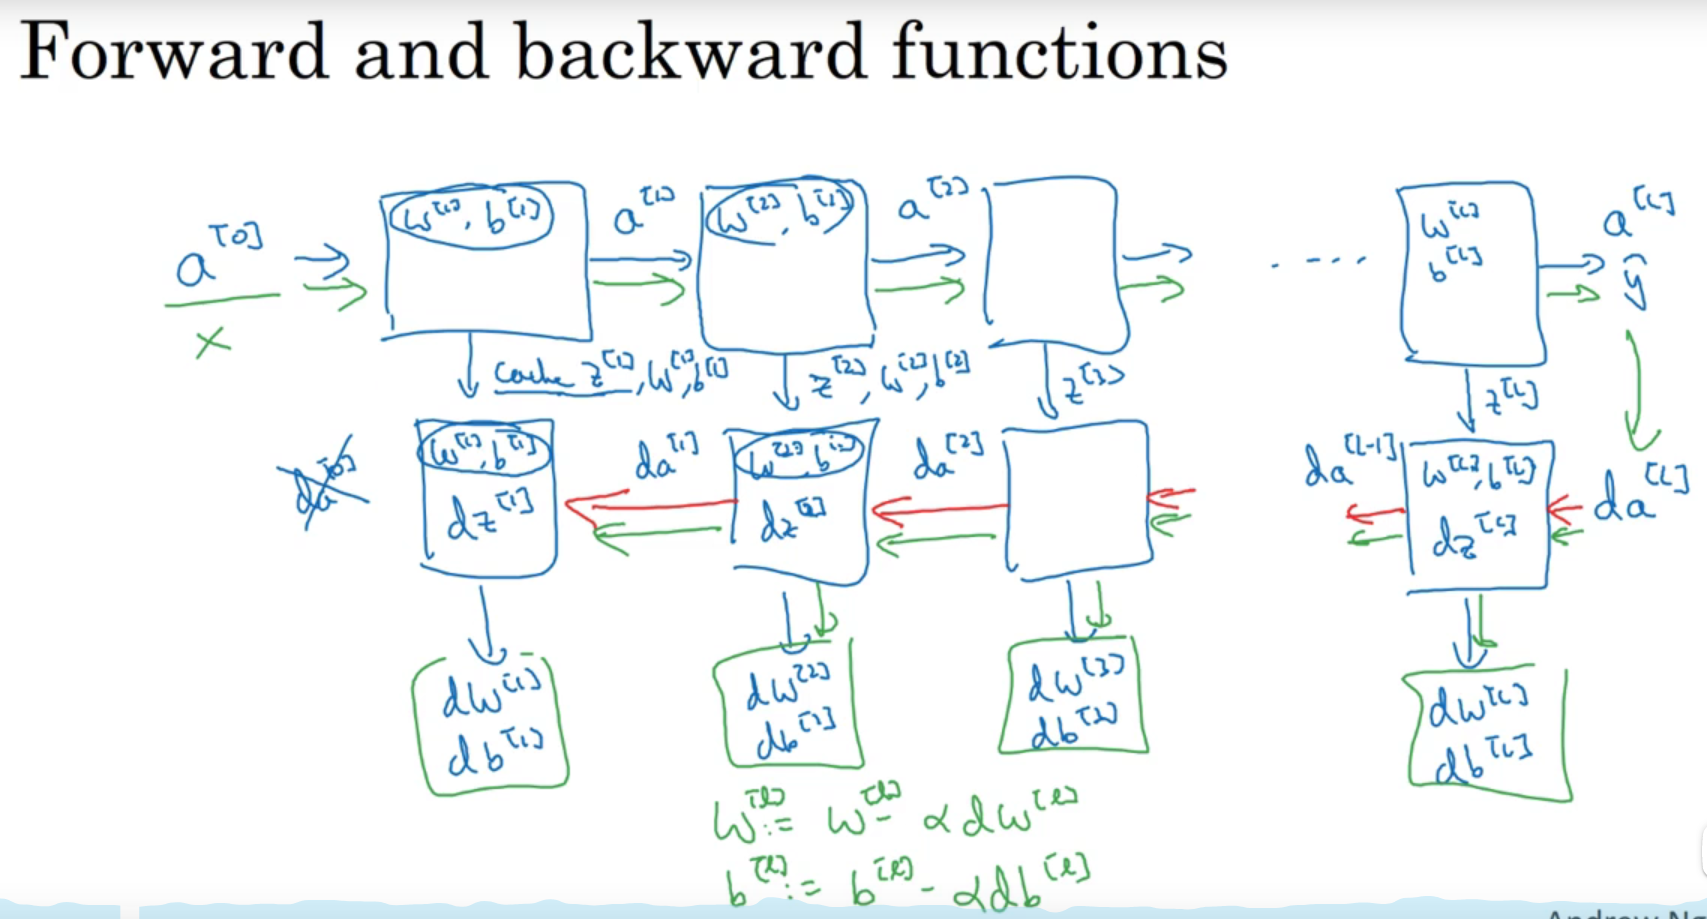 Forward and backward functions
a^[0] w^[1], b^[1] a^[1] w^[2], b^[2] a^[2] w^[L] a^[L]
b^[L] ŷ
x
cache z^[1], w^[1], b^[1] z^[2], w^[2], b^[2] z^[3] z^[L]
da^[0] w^[1], b^[1] da^[1] w^[2], b^[2] da^[2] da^[L-1] w^[L], b^[L] da^[L]
dz^[1] dz^[2] dz^[L]
dw^[1] dw^[2] dw^[3] dw^[L]
db^[1] db^[2] db^[3] db^[L]
W^[l] := W^[l] - αdw^[l]
b^[l] := b^[l] - αdb^[l]
Andrew